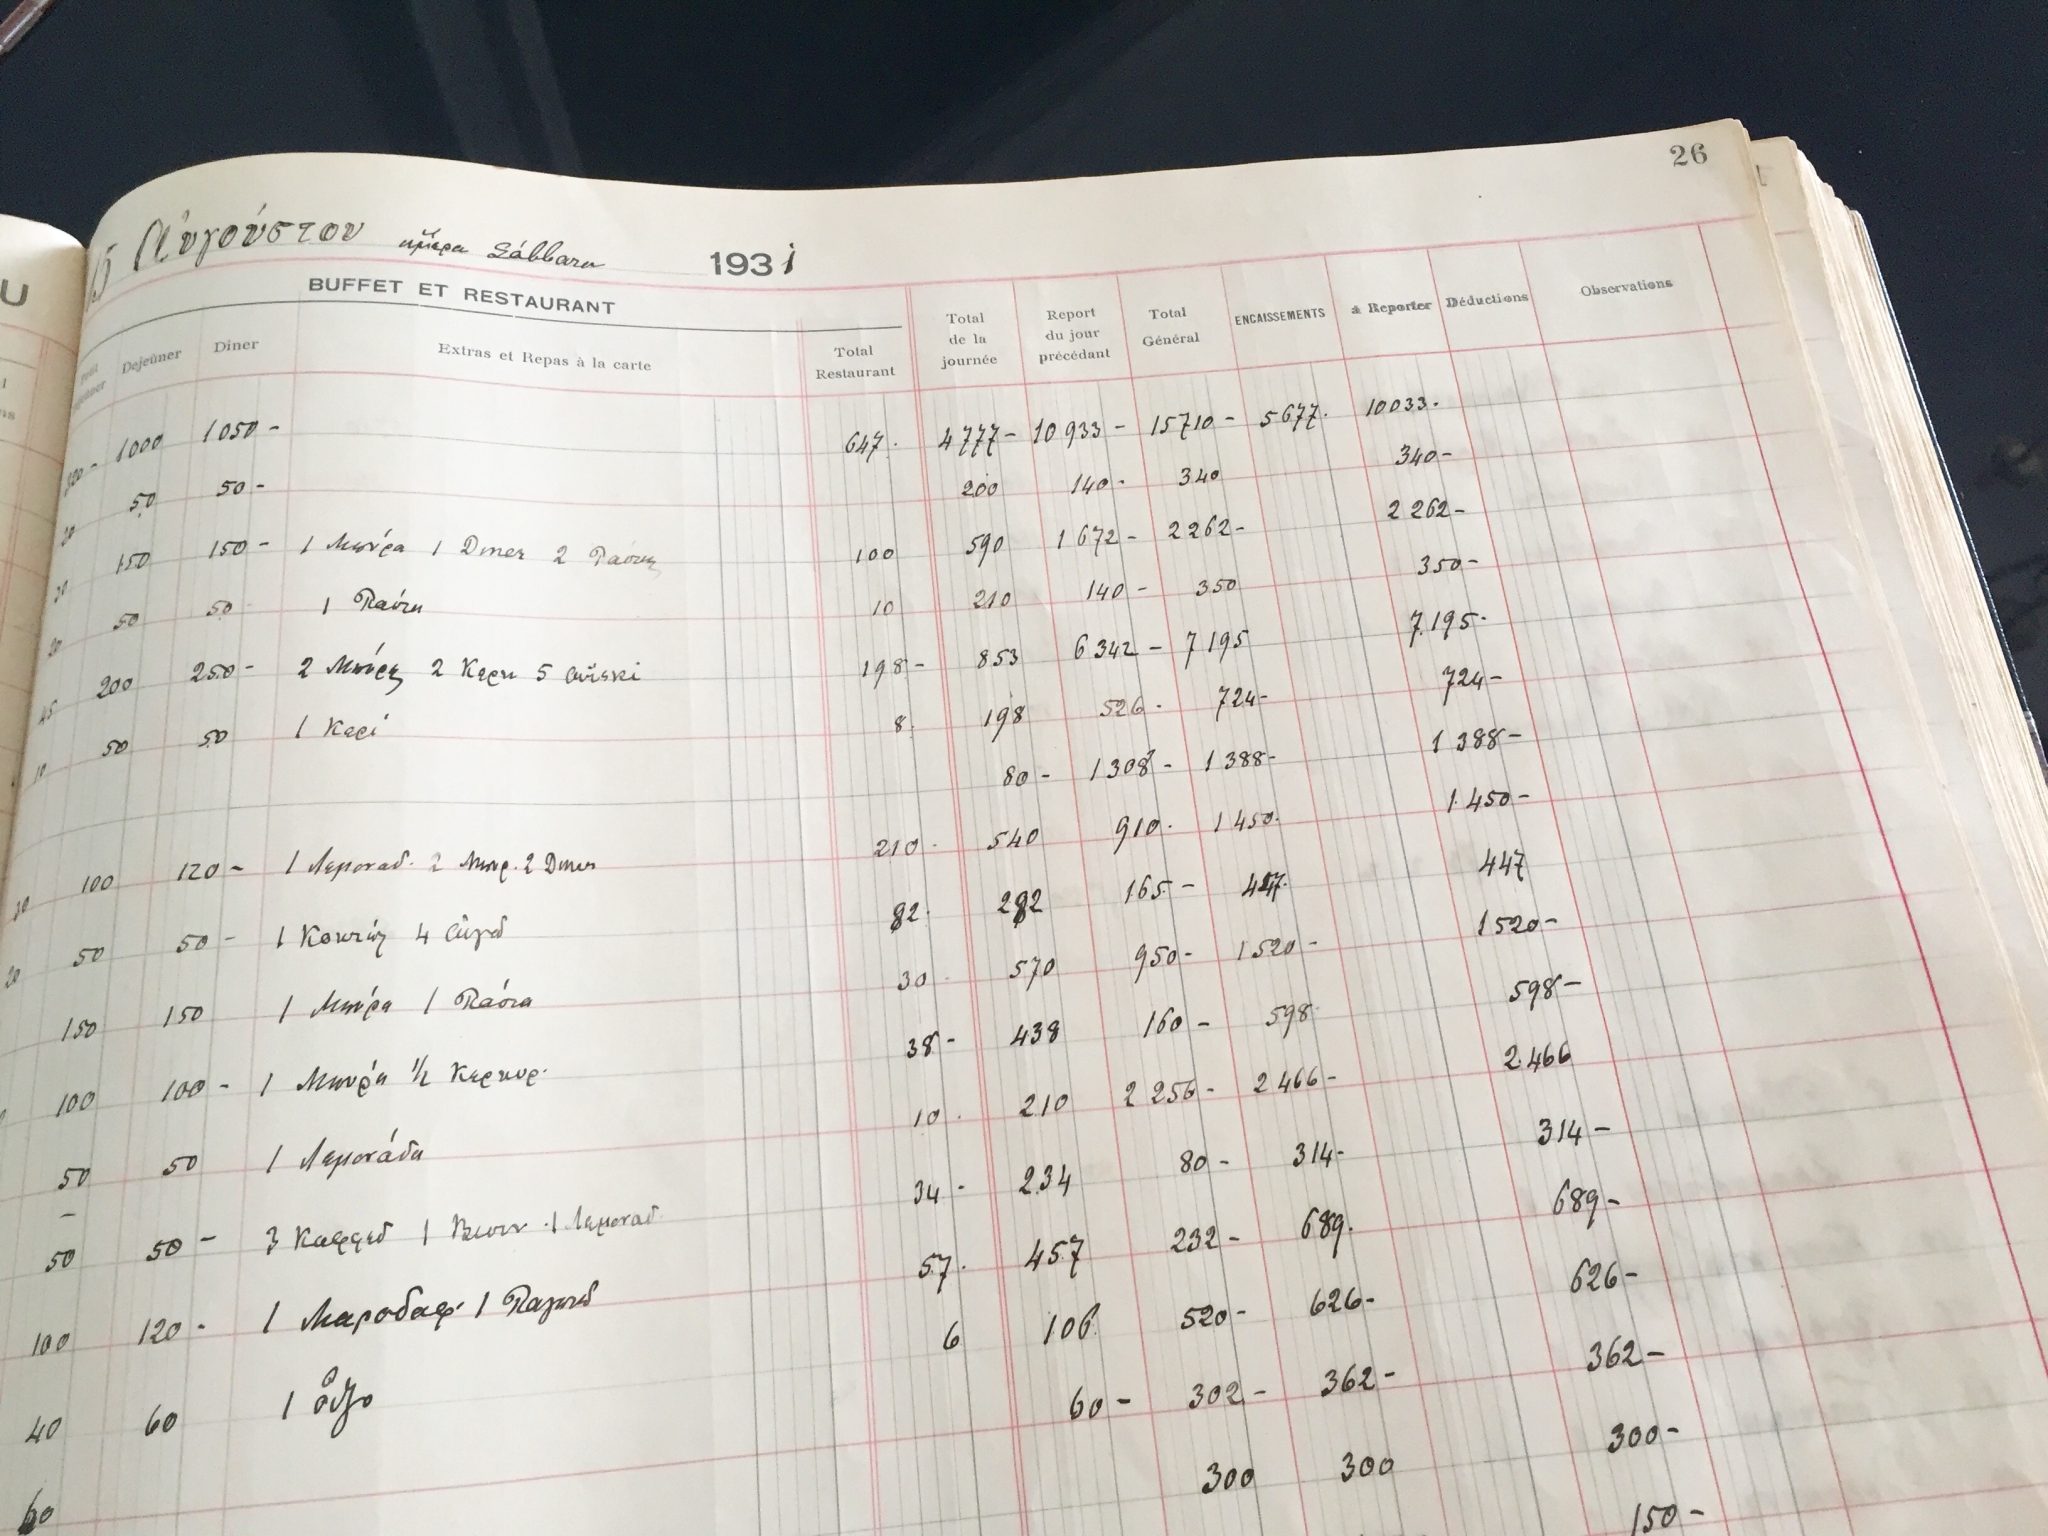 26
15 Αὐγούστου ἡμέρα Σάββατον 1931
BUFFET ET RESTAURANT
Petit déjeuner Dejeûner Dîner Extras et Repas à la carte Total Restaurant Total de la journée Report du jour précédant Total Général ENCAISSEMENTS à Reporter Déductions Observations
1000 1050 - 647. 4777- 10933- 15710- 5677. 10033.
20 50 50 - 200 140- 340 340-
150 150 - 1 Μπύρα 1 Diner 2 Πάστες 100 590 1672- 2262- 2262-
20 50 50 1 Πάστα 10 210 140- 350 350-
45 200 250 - 2 Μπύρες 2 5 οὐΐσκι 198- 853 6342- 7195 7.195-
10 50 50 1 8. 198 526. 724- 724-
80- 1308- 1388- 1388-
100 120 - 1 Λεμοναδ. 2 Μπυρ. 2 Diner 210. 540 910. 1450. 1.450-
20 50 50 - 1 4 82. 282 165- 447. 447
150 150 1 Μπύρα 1 Πάστα 30 570 950- 1520- 1520-
100 100 - 1 Μπύρα 1/2 Κερκυρ. 38- 438 160- 598 598-
50 50 1 Λεμονάδα 10. 210 2256- 2466- 2.466
50 50 - 3 Καφφέδ 1 Βυσιν. 1 Λεμοναδ 34. 234 80- 314- 314-
100 120 - 1 1 Παγωτ 57. 457 232- 689. 689-
40 60 1 οὖζο 6 106. 520- 626- 626-
60 60- 302- 362- 362-
300 300 300-
150-